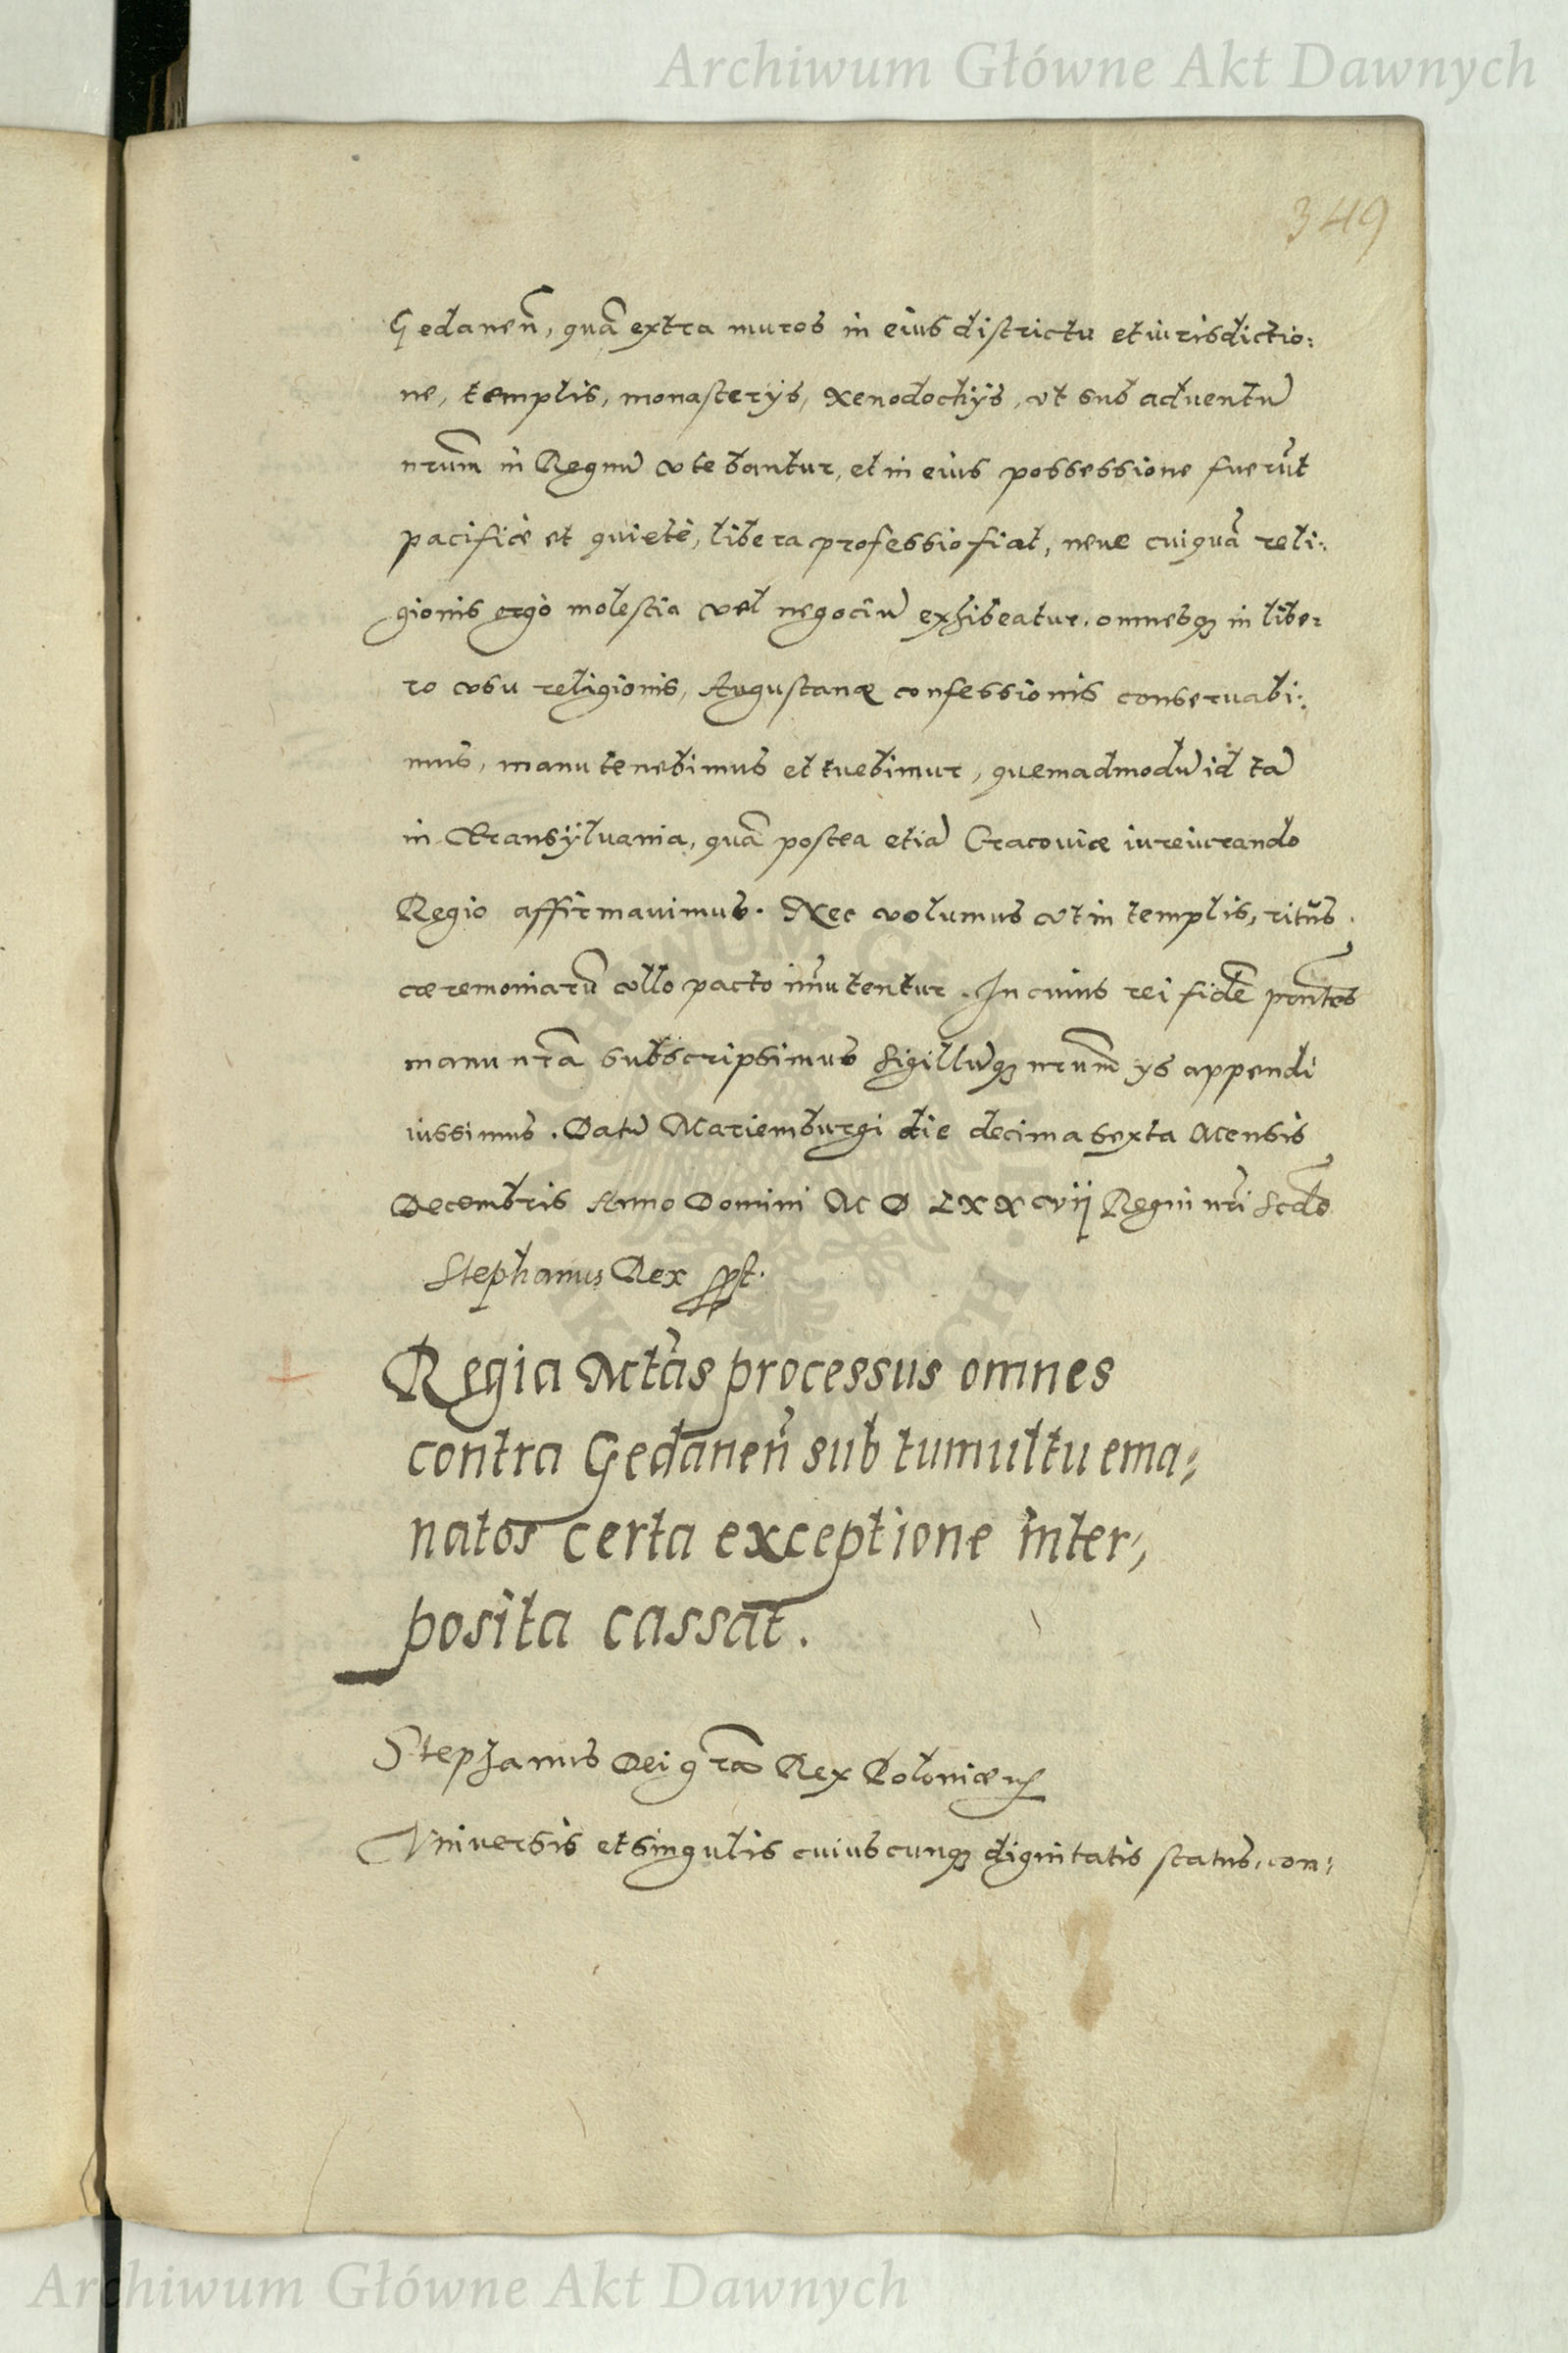 Archiwum Główne Akt Dawnych
349
Gedaneñ, quã extra muros in eius districtu et iurisdictio:
ne, templis, monasterijs, xenodochijs, vt sub aduentũ
nrũm in Regnũ vtebantur, et in eius possessione fuerũt
pacificè et quietè, libera professio fiat, neue cuiquã reli:
gionis ergò molestia vel negociũ exhibeatur. omnesq́ꝫ in libe:
ro vsu religionis, Augustanæ confessionis conseruabi:
mus, manutenebimus et tuebimur, quemadmodũ id tã
in Transÿluania, quã postea etiã Cracouiæ iureiurando
Regio affirmauimus. Nec volumus vt in templis, ritus
cæremoniarũ vllo pacto im̃utentur. In cuius rei fidẽ pñtes
manu nrã subscripsimus Sigillũqꝫ nrũm ijs appendi
iussimus. Datũ Mariemburgi die decima sexta Mensis
Decembris Anno Domini M D LXXvij Regni nri Scdo
Stephanus Rex sspt.
Regia Mtãs processus omnes
contra Gedaneñ sub tumultu ema:
natos certa exceptione inter:
posita cassat.
Stephanus Dei grã Rex Poloniæ etc
Vniversis et singulis cuiuscunqꝫ dignitatis status, con:
ARCHIWUM GŁÓWNE
AKT DAWNYCH
Archiwum Główne Akt Dawnych